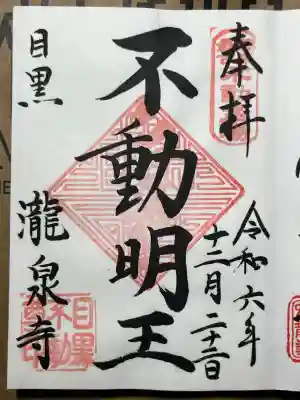 奉拝
令和六年
十二月二十二日
不動明王
目黒
瀧泉寺